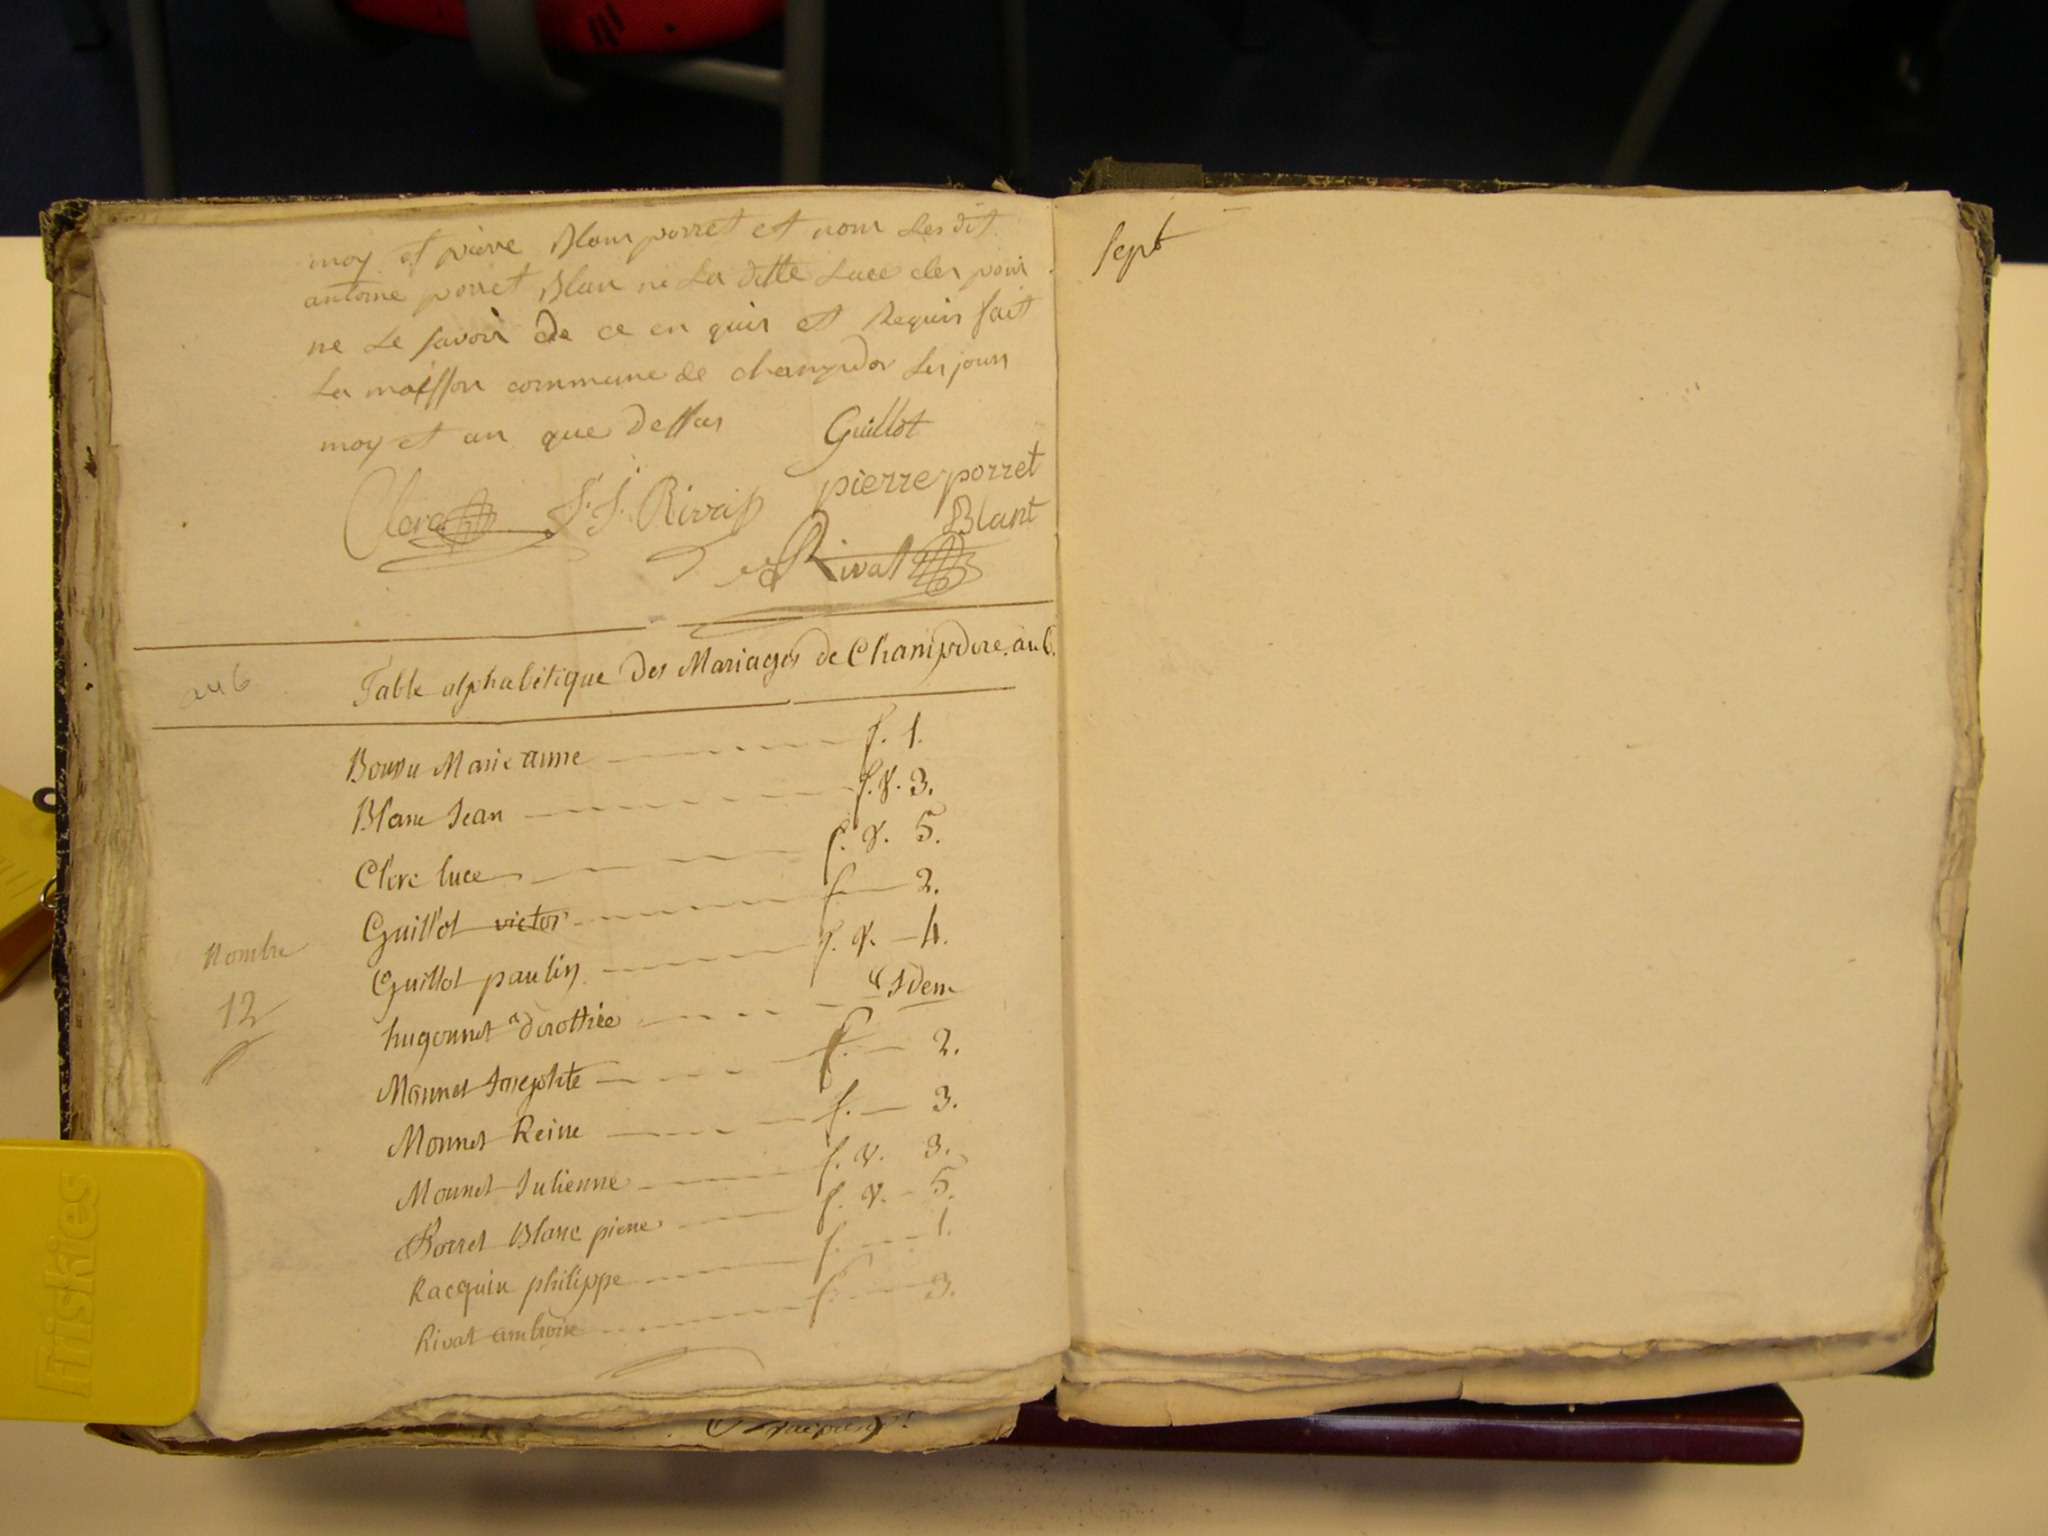 moy et pierre Blan porret et nom Les dit
antoine porret Blan ni La ditte Luce cler pour
ne Le savoir de ce en quis et Requis fait
La maisson commune de champdor Les jour
moy et an que dessus
Guillot
Clerc J.J. Rivat pierre porret
Blant
Rivat
an 6
Table alphabétique Des Mariages de Champdore. an 6.
Marie anne f. 1.
Blanc Jean f. v. 3.
Clerc luce f. v. 5.
Guillot victor f. 2.
Nombre
12
Guillot paulin f. v. 4.
hugonnet dorothée Idem
Monnet Josephte f. 2.
Monnet Reine f. 3.
Monnet Julienne f. v. 3.
Porret Blanc pierre f. v. 5.
Racquin philippe f. 1.
Rivat ambroise f. 3.
Sept
Friskies